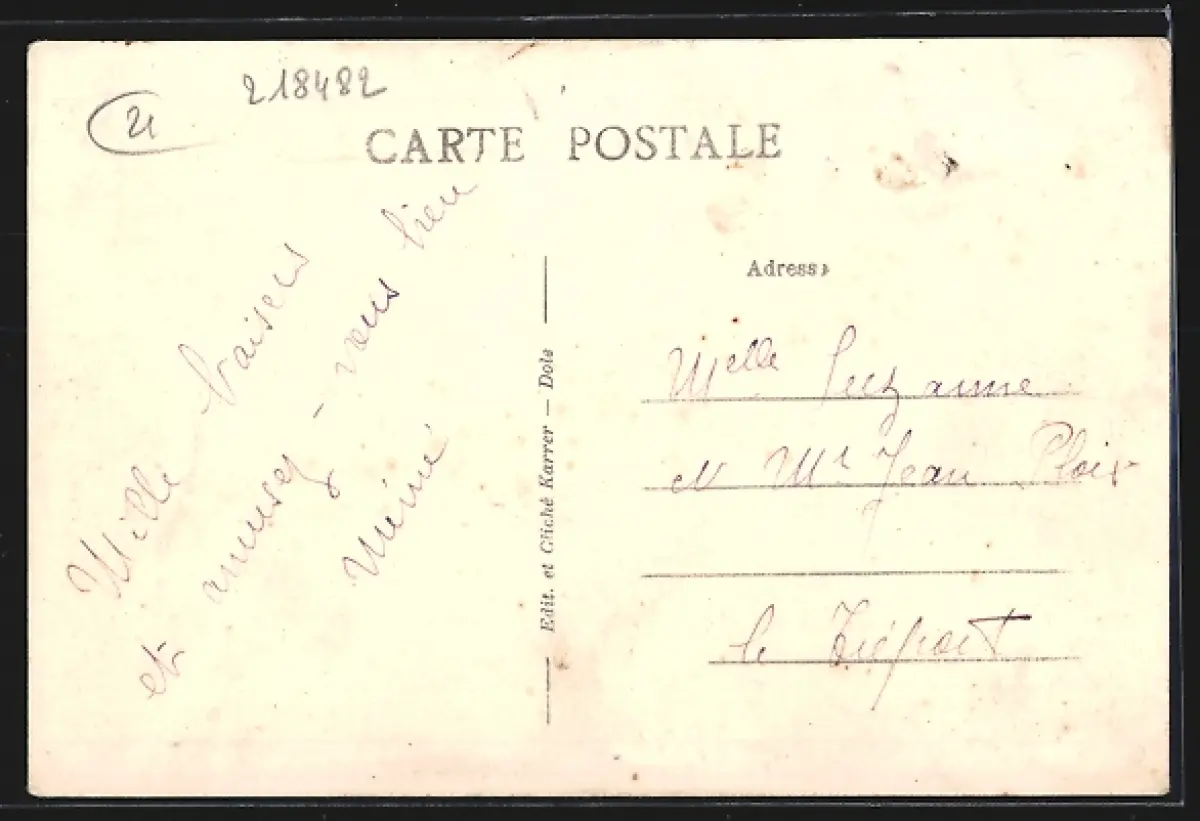 218482
21
CARTE POSTALE
Mille baisers
et amusez-vous bien
Mémé
Edit. et Cliché Karrer — Dole
Adresse
Melle Suzanne
et Mr Jean Ploix
le Tréport